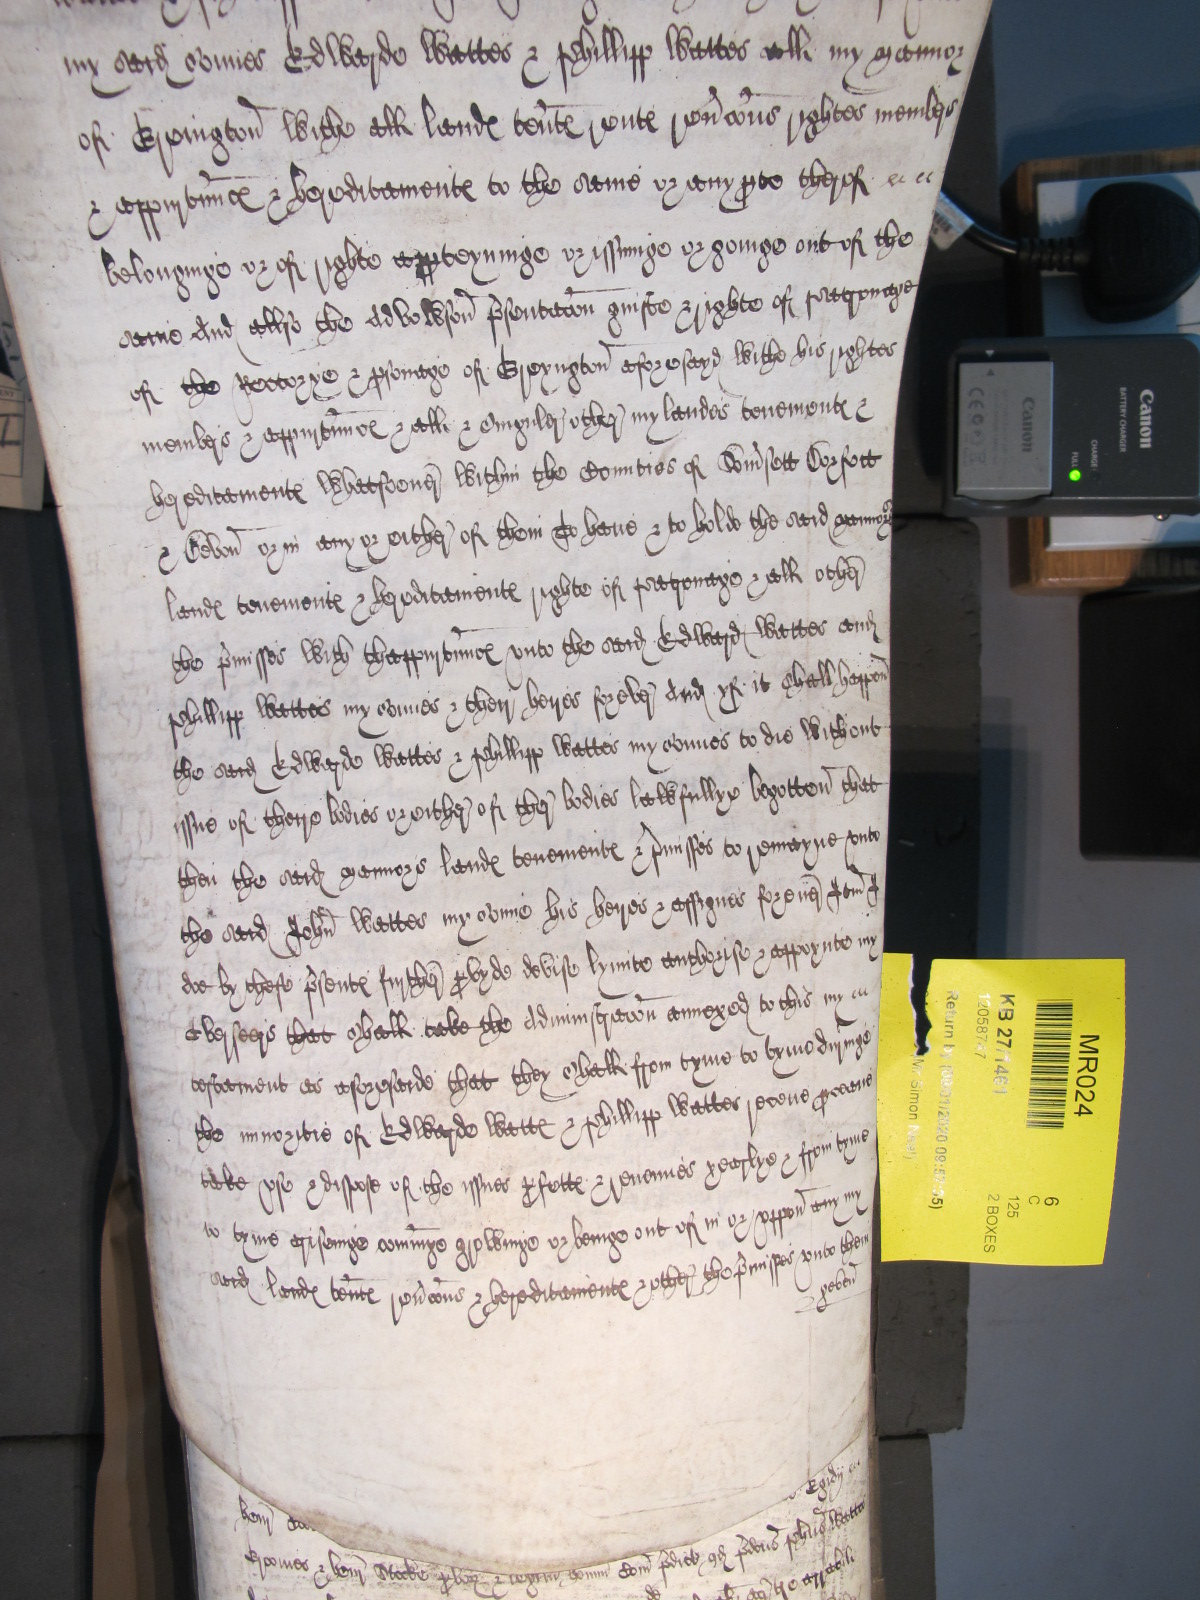 my said sonnes Edwarde Wattes & Phillipp Wattes all my mannor
of Erpington withe all lands tents rents rev'cons rightes members
& appurtnnces & hereditaments to the same or any p'te therof
belonginge or of righte apperteyninge or issuinge or goinge out of the
same And allso the Advowson p'sentacon guifte & righte of patronage
of the Rectorye & p'sonage of aforesayd withe his rightes
members & appurtnnces & all & singuler other my landes tenements &
hereditaments whatsoever within the Counties of Som'sett Dorsett
& Devon or in any or either of them To have & to holde the said mannors
lands tenements & hereditaments righte of patronage & all other
the p'misses with thappurtnnces unto the said Edward Wattes and
Phillipp Wattes my sonnes & their heires forever And yf it shall happen
the said Edwarde Wattes & Phillipp Wattes my sonnes to die without
issue of theire bodies or either of their bodies lawfullye begotten that
then the said mannors lands tenements & p'misses to remayne unto
the said John Wattes my sonne his heires & assignes forever Item I
doe by these p'sents further p'vyde devise lymite authorise & appoynte my
overseers that shall take the Administracon annexed to this my
testament as aforesaide that they shall from tyme to tyme duringe
the minoritie of Edwarde Watts & Phillipp Wattes receve p'ceave
take use & dispose of the issues p'fitts & revenues yearlye & from tyme
to tyme ariseinge cominge growinge or beinge out of in or uppon any my
said lands tents rev'cons & hereditaments & other the p'misses unto them
geven
Canon
BATTERY CHARGER
CHARGE
FULL
Canon
MR024
KB 27/1461
12058747
Return by (09/01/2020 09:57:35)
Mr Simon Neal
6
C
125
2 BOXES